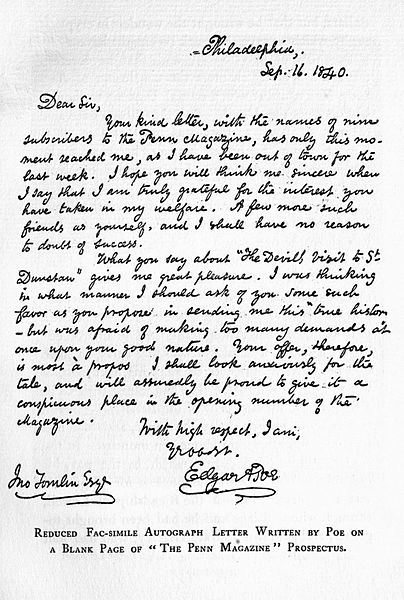 Philadelphia,
Sep. 16. 1840.
Dear Sir,
Your kind letter, with the names of nine
subscribers to the Penn Magazine, has only this mo-
ment reached me, as I have been out of town for the
last week. I hope you will think me sincere when
I say that I am truly grateful for the interest you
have taken in my welfare. A few more such
friends as yourself, and I shall have no reason
to doubt of success.
What you say about "The Devil's Visit to St
Dunstan" gives me great pleasure. I was thinking
in what manner I should ask of you some such
favor as you propose in sending me this "true histor
- but was afraid of making too many demands at
once upon your good nature. Your offer, therefore,
is most à propos. I shall look anxiously for the
tale, and will assuredly be proud to give it a
conspicuous place in the opening number of the
Magazine.
With high respect, I am,
Yr ob St.
Edgar A Poe
Jno Tomlin Esqr
REDUCED FAC-SIMILE AUTOGRAPH LETTER WRITTEN BY POE ON
A BLANK PAGE OF "THE PENN MAGAZINE" PROSPECTUS.